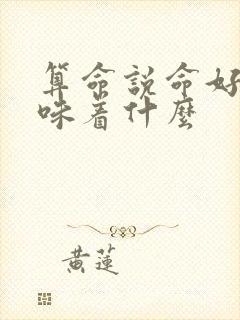 算命説命好
味着什麼
黄蓮